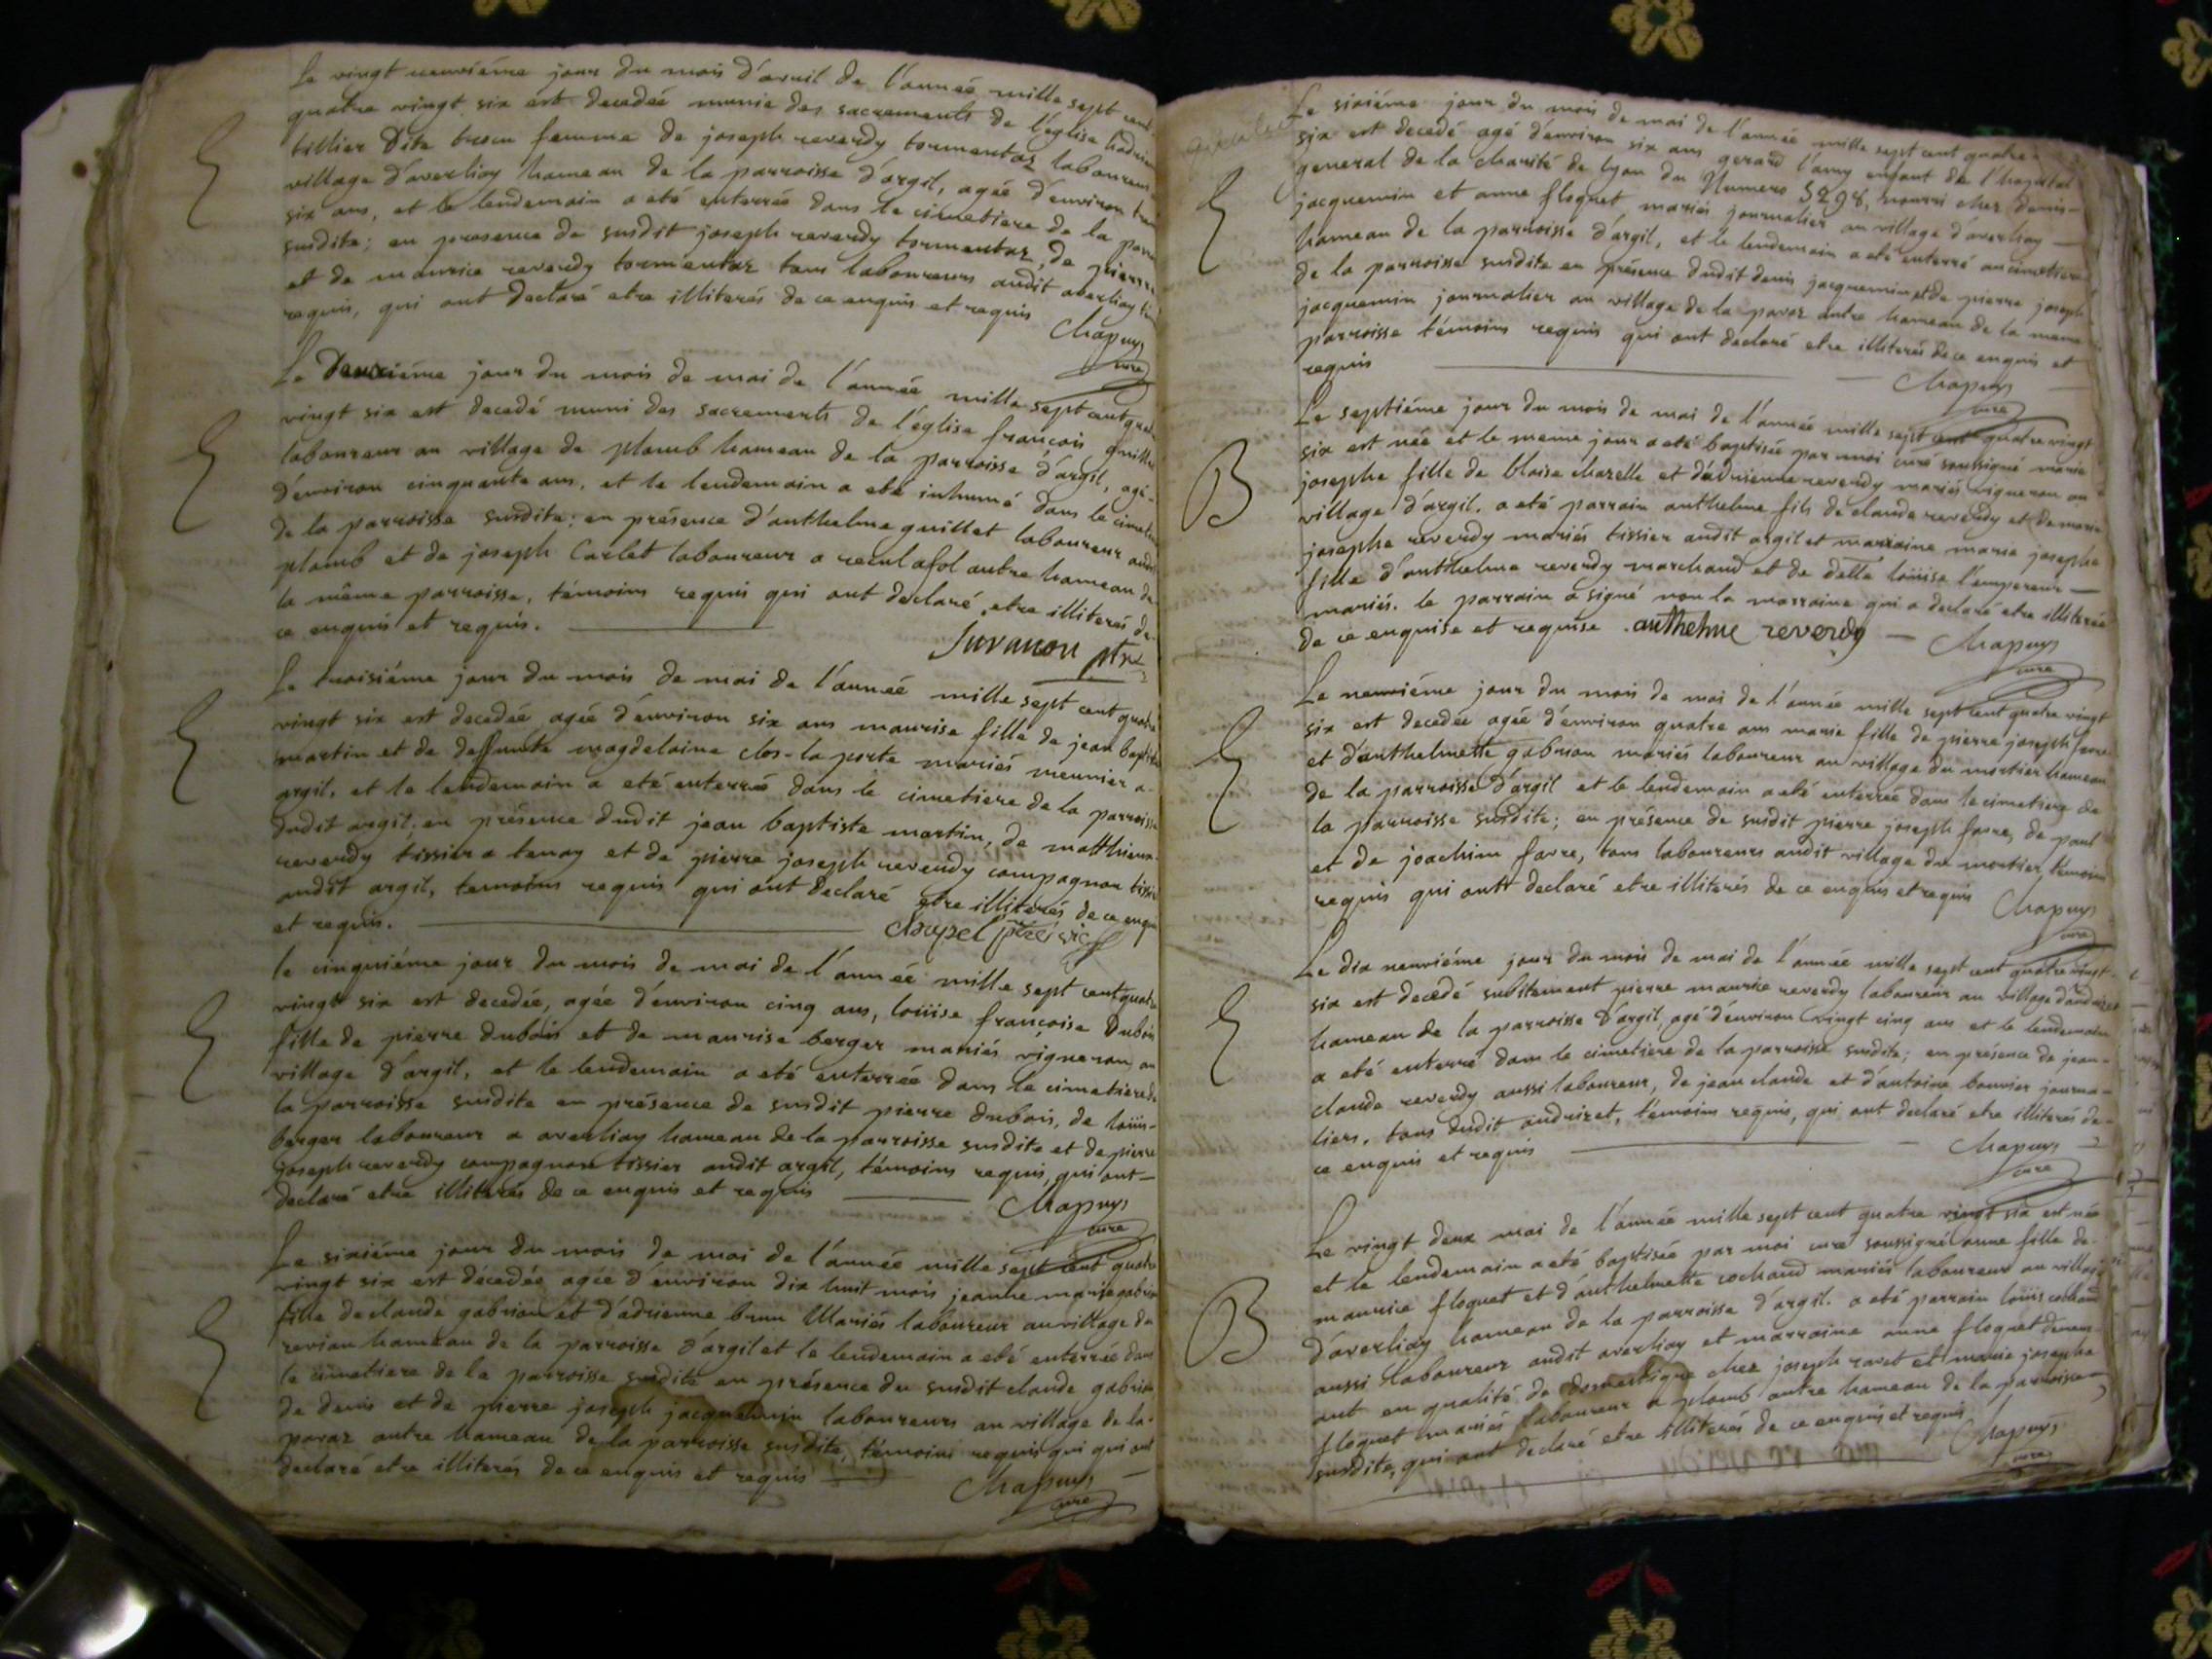 Le vingt neuviéme jour du mois d'avril de l'année mille sept cent
quatre vingt six est decedée munie des sacrements de l'église
tillier dite femme de joseph reverdy tormentaz laboureur
village d'averliay hameau de la parroisse d'argil, agée d'environ
six ans, et le lendemain a eté enterrée dans le cimetiere de la
susdite; en presence de susdit joseph reverdy tormentaz, de pierre
et de maurice reverdy tormentaz tous laboureurs audit averliay
requis, qui ont declaré etre illiterés de ce enquis et requis
Chapuy
curé
Le deuxiéme jour du mois de mai de l'année mille sept cent
vingt six est decedé muni des sacrements de l'église françois
laboureur au village de plomb hameau de la parroisse d'argil, agé
d'environ cinquante ans, et le lendemain a eté inhumé dans le
de la parroisse susdite; en présence d'anthelme guillet laboureur
plomb et de joseph Carlet laboureur a reculafol autre hameau de
la même parroisse, témoins requis qui ont declaré etre illiterés de
ce enquis et requis.
Juvanon ptre
Le troisiéme jour du mois de mai de l'année mille sept cent quatre
vingt six est decedée agée d'environ six ans maurise fille de jean baptiste
martin et de deffunte magdelaine clos-la porte mariés meunier a
argil, et le lendemain a eté enterrée dans le cimetiere de la parroisse
dudit argil; en présence dudit jean baptiste martin, de matthieu
reverdy tissier a tenay et de pierre joseph reverdy compagnon tissier
audit argil, temoins requis qui ont declaré etre illiterés de ce enquis
et requis.
Chapel ptre vic
le cinquiéme jour du mois de mai de l'année mille sept cent quatre
vingt six est decedée, agée d'environ cinq ans, loüise françoise dubois
fille de pierre dubois et de maurise berger mariés vigneron au
village d'argil, et le lendemain a eté enterrée dans le cimetiere de
la parroisse susdite en présence de susdit pierre dubois, de loüis
berger laboureur a averliay hameau de la parroisse susdite et de pierre
joseph reverdy compagnon tissier audit argil, témoins requis, qui ont
declaré etre illiterés de ce enquis et requis
Chapuy
curé
Le sixiéme jour du mois de mai de l'année mille sept cent quatre
vingt six est décedée agée d'environ dix huit mois jeanne marie gabrion
fille de claude gabrion et d'adrienne brun Mariés laboureur au village de
revian hameau de la parroisse d'argil et le lendemain a eté enterrée dans
le cimetiere de la parroisse susdite en présence du susdit claude gabrion
de denis et de pierre joseph jacquemin laboureurs au village de la
paraz autre hameau de la parroisse susdite, témoins requis qui qui ont
declaré etre illiterés de ce enquis et requis
Chapuy
curé
Le sixiéme jour du mois de mai de l'année mille sept cent quatre
six est decedé agé d'environ six ans gerard l'amy enfant de l'hopital
general de la charité de lyon du Numero 5298, nourri chez denis
jacquemin et anne floquet mariés journalier au village d'averliay
hameau de la parroisse d'argil, et le lendemain a eté enterré au cimetiere
de la parroisse susdite en présence dudit denis jacquemin et de pierre joseph
jacquemin journalier au village de la paraz autre hameau de la meme
parroisse témoins requis qui ont declaré etre illiterés de ce enquis et
requis
Chapuy
curé
Le septiéme jour du mois de mai de l'année mille sept cent quatre vingt
B
six est née et le meme jour a eté baptisée par moi curé soussigné marie
josephe fille de blaise charelle et d'adrienne reverdy mariés vigneron au
village d'argil. a eté parrain anthelme fils de claude reverdy et de marie
josephe reverdy mariés tissier audit argil et marraine marie josephe
fille d'anthelme reverdy marchand et de delle loüise l'empereur
mariés. le parrain a signé non la marraine qui a declaré etre illiterée
de ce enquise et requise. anthelme reverdy
Chapuy
curé
Le neuviéme jour du mois de mai de l'année mille sept cent quatre vingt
six est decedée agée d'environ quatre ans marie fille de pierre joseph favre
et d'anthelmette gabrion mariés laboureur au village du mortier hameau
de la parroisse d'argil et le lendemain a eté enterrée dans le cimetiere de
la parroisse susdite; en présence de susdit pierre joseph favre, de paul
et de joachim favre, tous laboureurs audit village du mortier, témoins
requis qui ont declaré etre illiterés de ce enquis et requis
Chapuy
curé
Le dix neuviéme jour du mois de mai de l'année mille sept cent quatre vingt
six est decedé subitement pierre maurice reverdy laboureur au village d'anduizet
hameau de la parroisse d'argil, agé d'environ vingt cinq ans et le lendemain
a eté enterré dans le cimetiere de la parroisse susdite; en présence de jean
claude reverdy aussi laboureur, de jean claude et d'antoine bouvier journa-
liers, tous dudit anduizet, témoins requis, qui ont declaré etre illiterés de
ce enquis et requis
Chapuy
curé
Le vingt deux mai de l'année mille sept cent quatre vingt six est née
B
et le lendemain a eté baptisée par moi curé soussigné anne fille de
maurice floquet et d'anthelmette cochand mariés laboureur au village
d'averliay hameau de la parroisse d'argil. a eté parrain loüis cochand
aussi laboureur audit averliay et marraine anne floquet demeu-
rant en qualité de domestique chez joseph ravet et marie josephe
floquet mariés laboureur a plomb autre hameau de la parroisse
susdite, qui ont declaré etre illiterés de ce enquis et requis
Chapuy
curé